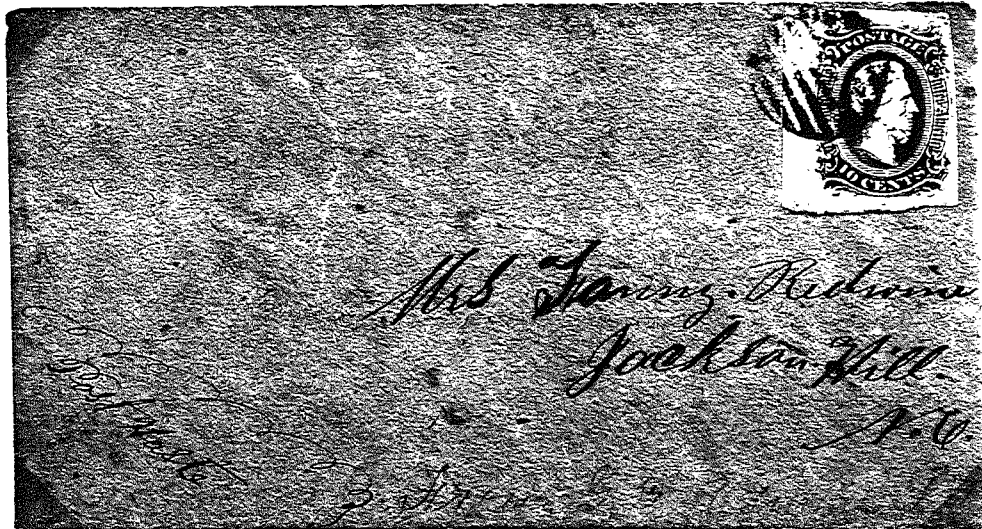 POSTAGE
10 CENTS
Mrs Fanny. Redwine
Jackson Hill.
N.C.
Post Master